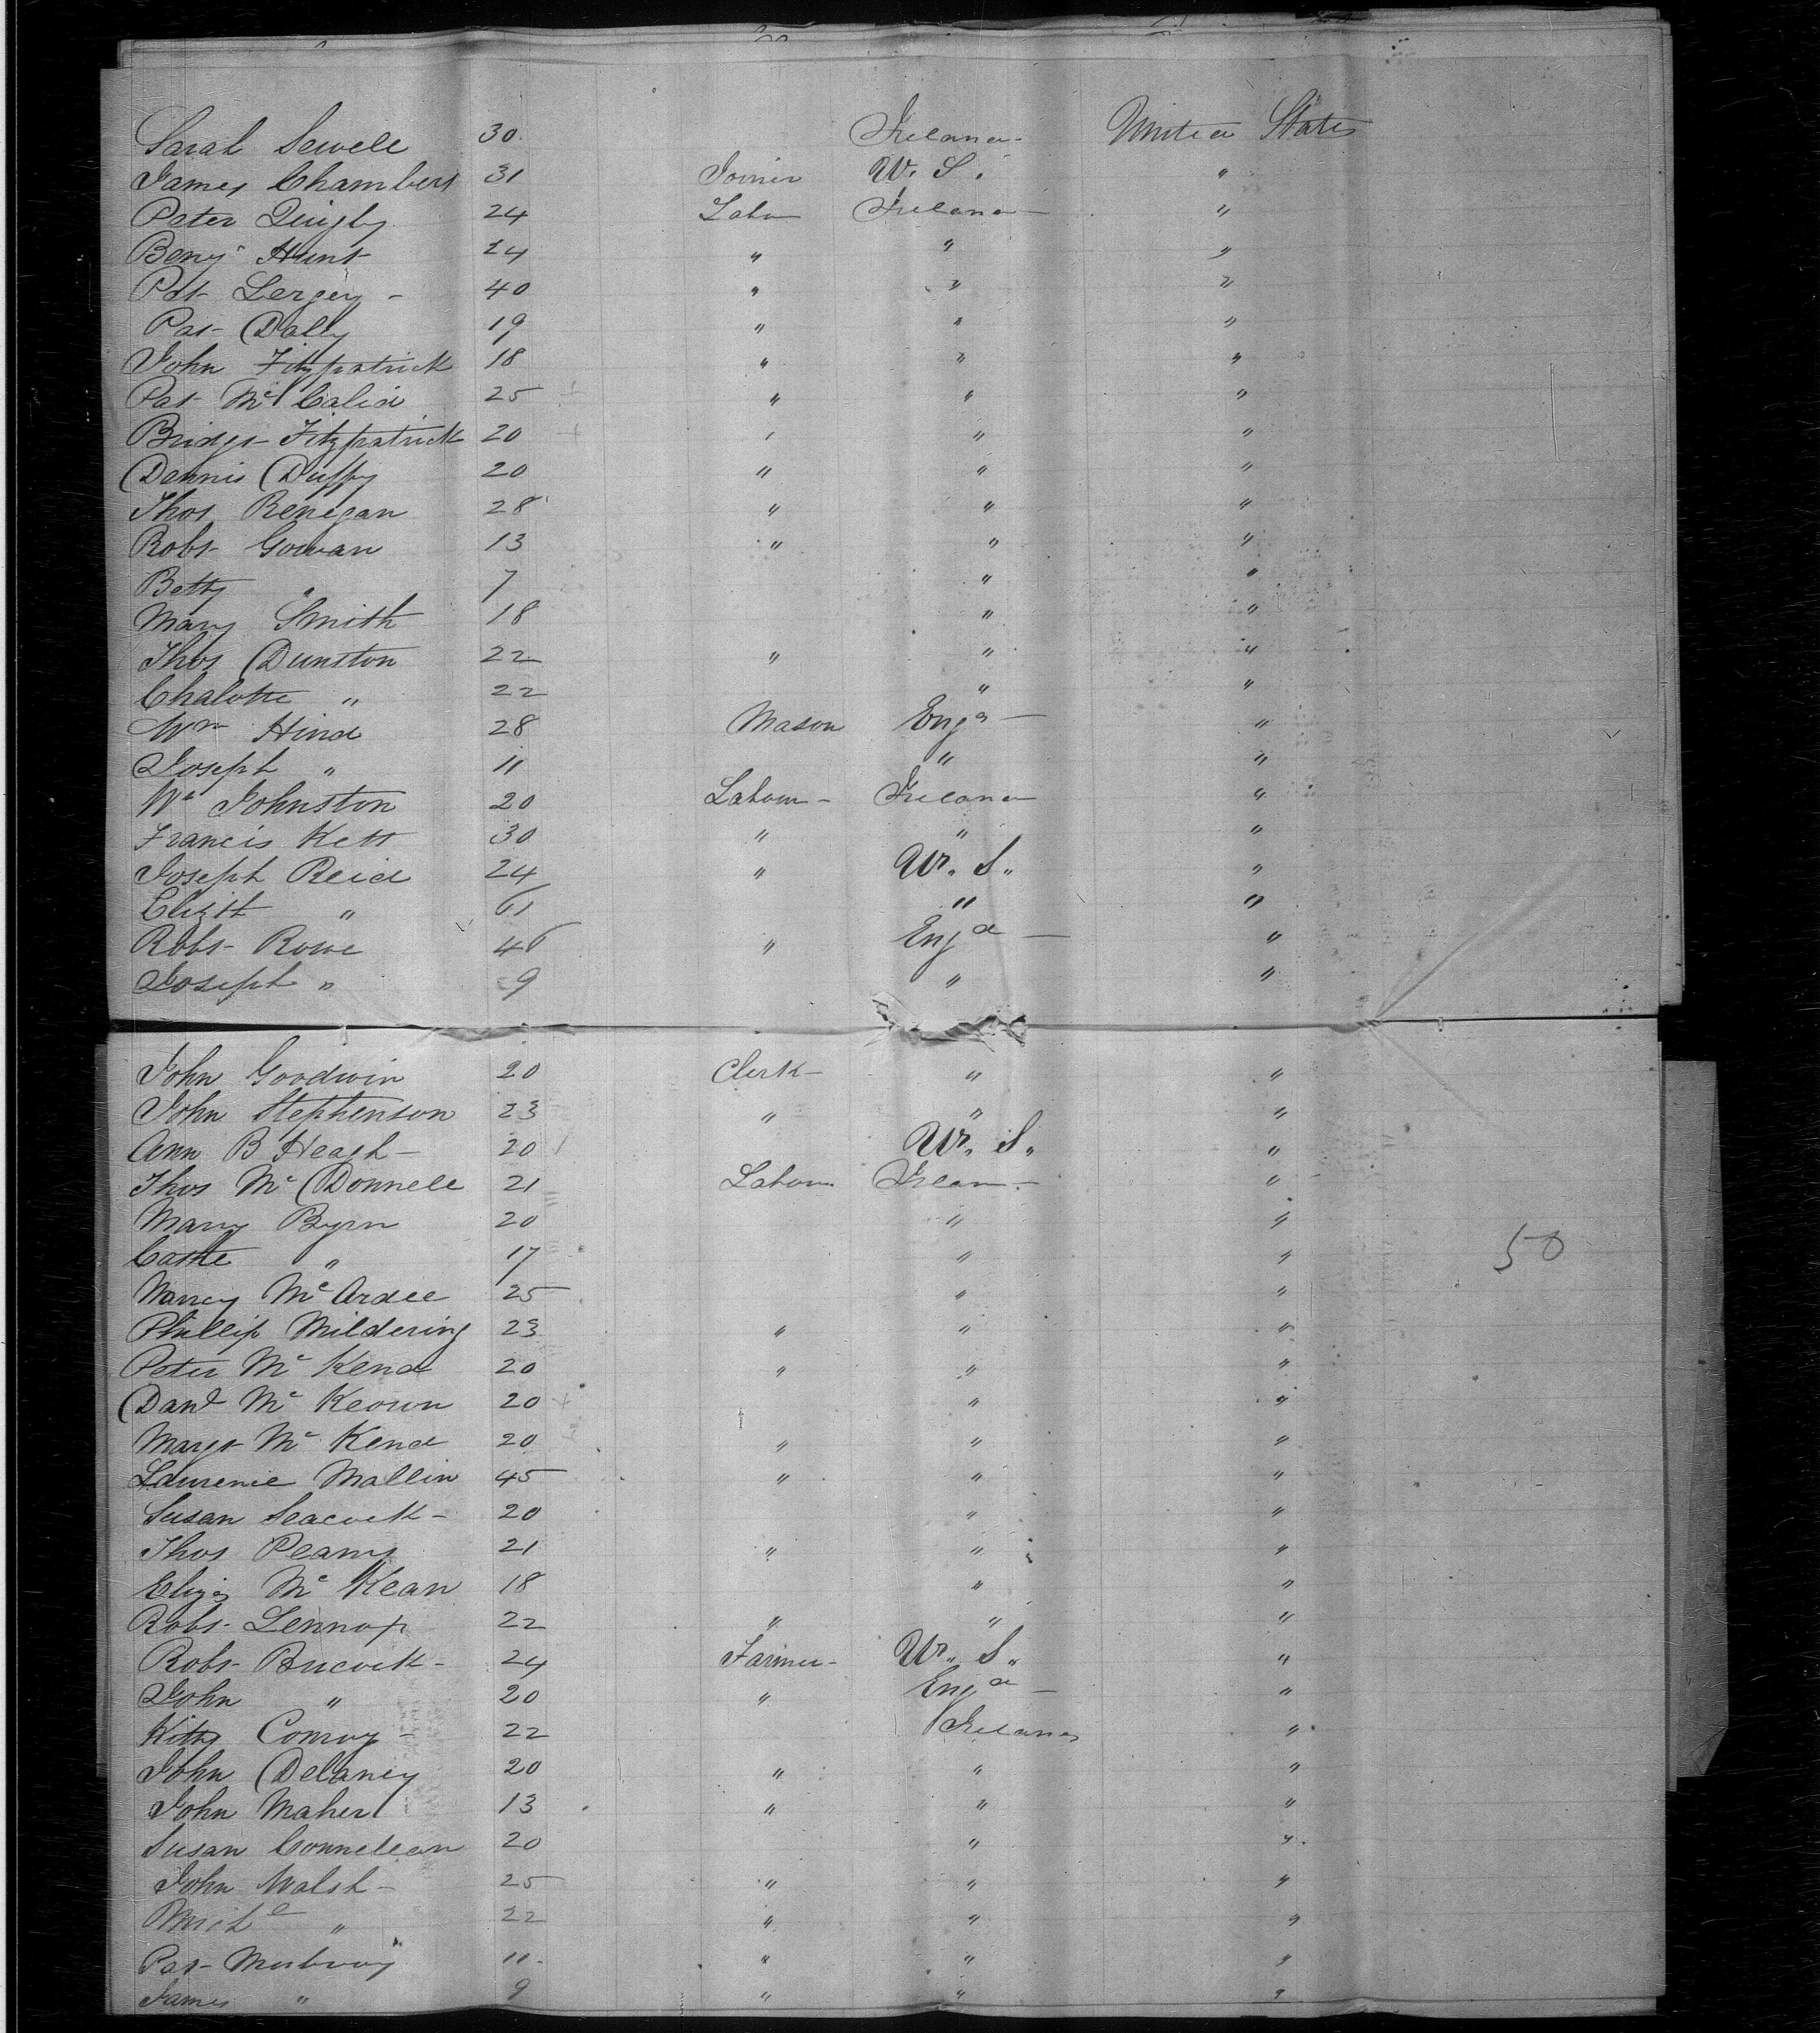 Sarah Sewell 30. Ireland - United States
James Chambers 31 Joiner U. S. "
Peter Quigly 24 Labr Ireland - "
Benj Hunt 24 " " "
Pat Lergey - 40 " " "
Pat Dally 19 " " "
John Fitzpatrick 18 " " "
Pat Mc 25 " " "
Bridgt Fitzpatrick 20 " " "
Dennis Duffy 20 " " "
Thos Renegan 28 " " "
Robt Gowan 13 " " "
Betty " 7 " "
Mary Smith 18 " "
Thos Dunston 22 " " "
Chalotte " 22 " "
Wm Hind 28 Mason Engd - "
Joseph " 11 " "
Wm Johnston 20 Labour - Ireland "
Francis Kett 30 " " "
Joseph Reid 24 " U. S. "
Elizth " 61 " "
Robt Rowe 46 " Engd - "
Joseph " 9 " "
John Goodwin 20 Clerk - " "
John Stephenson 23 " " "
Ann B Heagh - 20 U. S. "
Thos Mc Donnell 21 Labour Irelan - "
Mary Byrn 20 " "
Cathe " 17 " "
Nancy Mc Ardle 25 " "
Phillip Mildering 23 " " "
Peter Mc Kend 20 " " "
Danl Mc Keown 20 " "
Margt Mc Kend 20 " " "
Laurence Mallin 45 " " "
Susan Seacock - 20 " "
Thos Peamy 21 " " "
Eliza Mc Kean 18 " "
Robt Lennox 22 " " "
Robt Bucock - 24 Farmer - U. S. "
John " 20 " Engd - "
Kitty Conroy - 22 Ireland "
John Delaney 20 " " "
John Maher 13 " " "
Susan Connellean 20 " "
John Walsh - 25 " " "
Michl " 22 " " "
Pat 11 " " "
James " 9 " " "
50